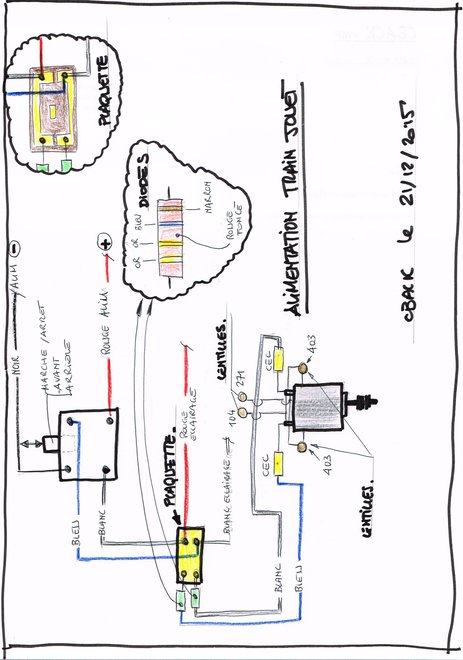 PLAQUETTE
DIODES
OR
OR
BLEU
MARRON
ROUGE FONCÉ
ALIMENTATION TRAIN JOUET
CBACK le 21/12/2015
NOIR
ALIM
−
MARCHE/ARRET
AVANT
ARRIÈRE
ROUGE ALIM
+
BLEU
BLANC
PLAQUETTE.
ROUGE
ECLAIRAGE
BLANC ECLAIRAGE
LENTILLES.
104
271
CEC
CEC
403
403
LENTILLES.
BLANC
BLEU